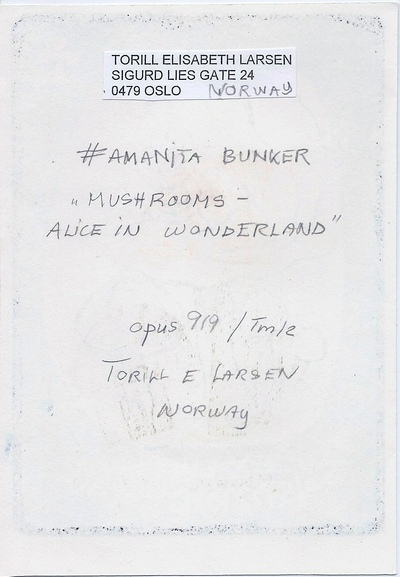 TORILL ELISABETH LARSEN
SIGURD LIES GATE 24
0479 OSLO NORWAY
#AMANITA BUNKER
„MUSHROOMS –
ALICE IN WONDERLAND”
opus 919 /
TORILL E LARSEN
NORWAY